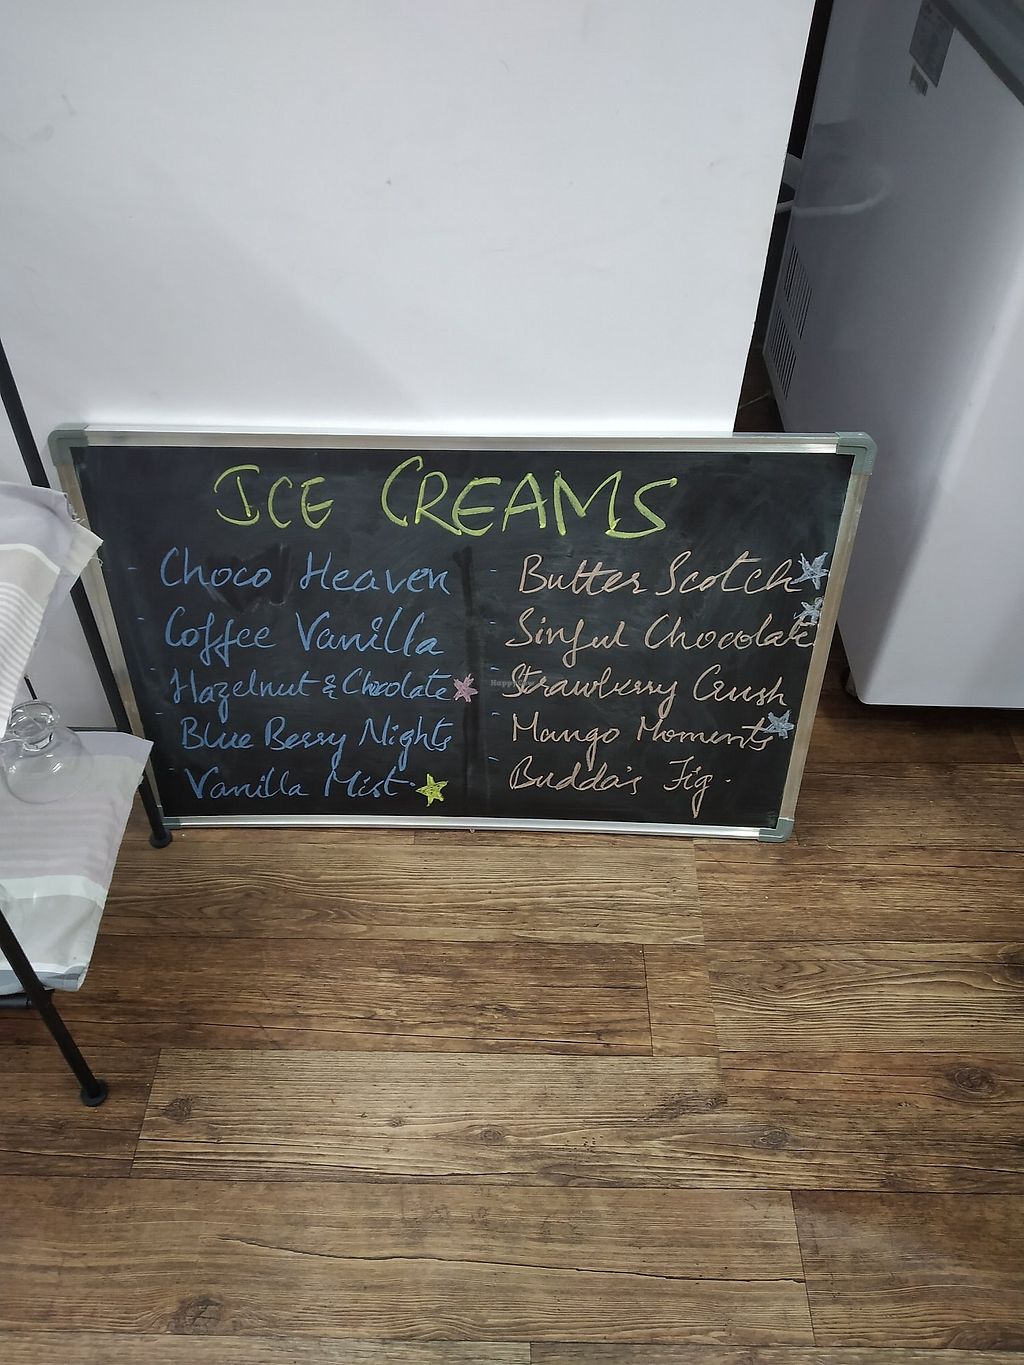 ICE CREAMS
- Choco Heaven
- Coffee Vanilla
- Hazelnut & Chocolate
- Blue Berry Nights
- Vanilla Mist.
- Butter Scotch
- Sinful Chocolate
- Strawberry Crush
- Mango Moments
- Budda's Fig.